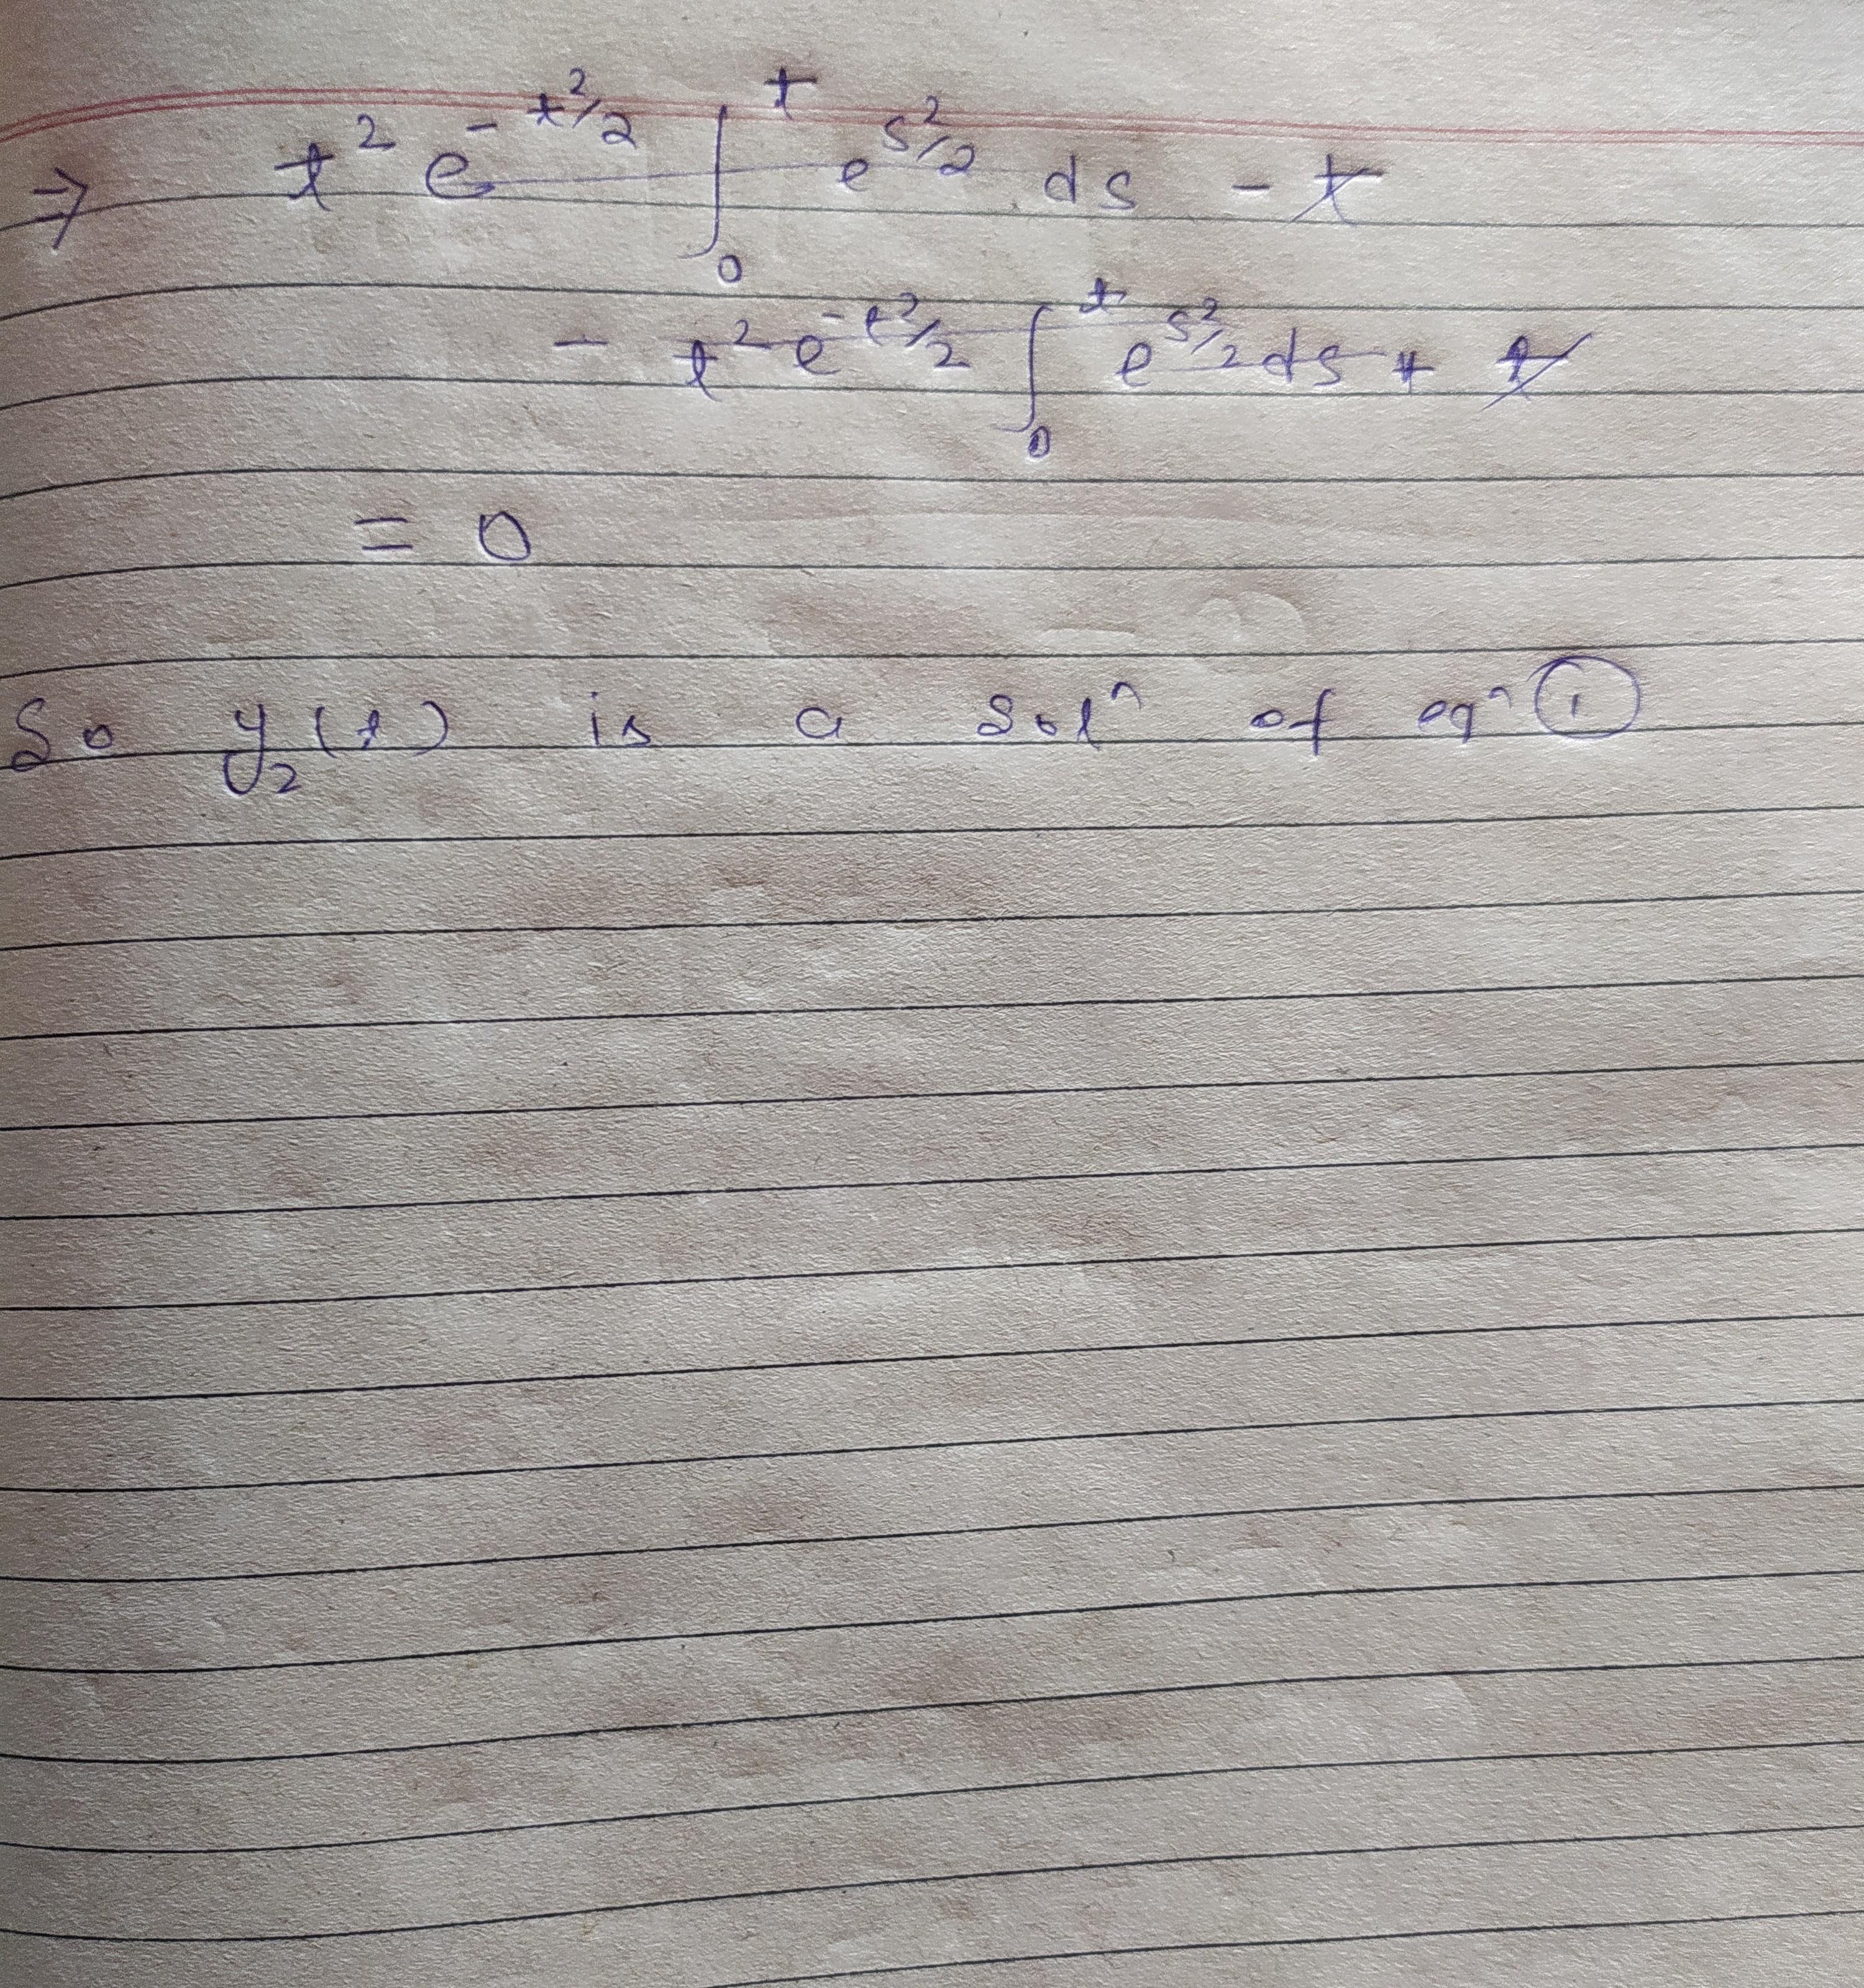 ⇒ t² e^{-t²/2} ∫₀ᵗ e^{s²/2} ds - t
- t² e^{-t²/2} ∫₀ᵗ e^{s²/2} ds + t
= 0
So y₂(t) is a solⁿ of eqⁿ ①